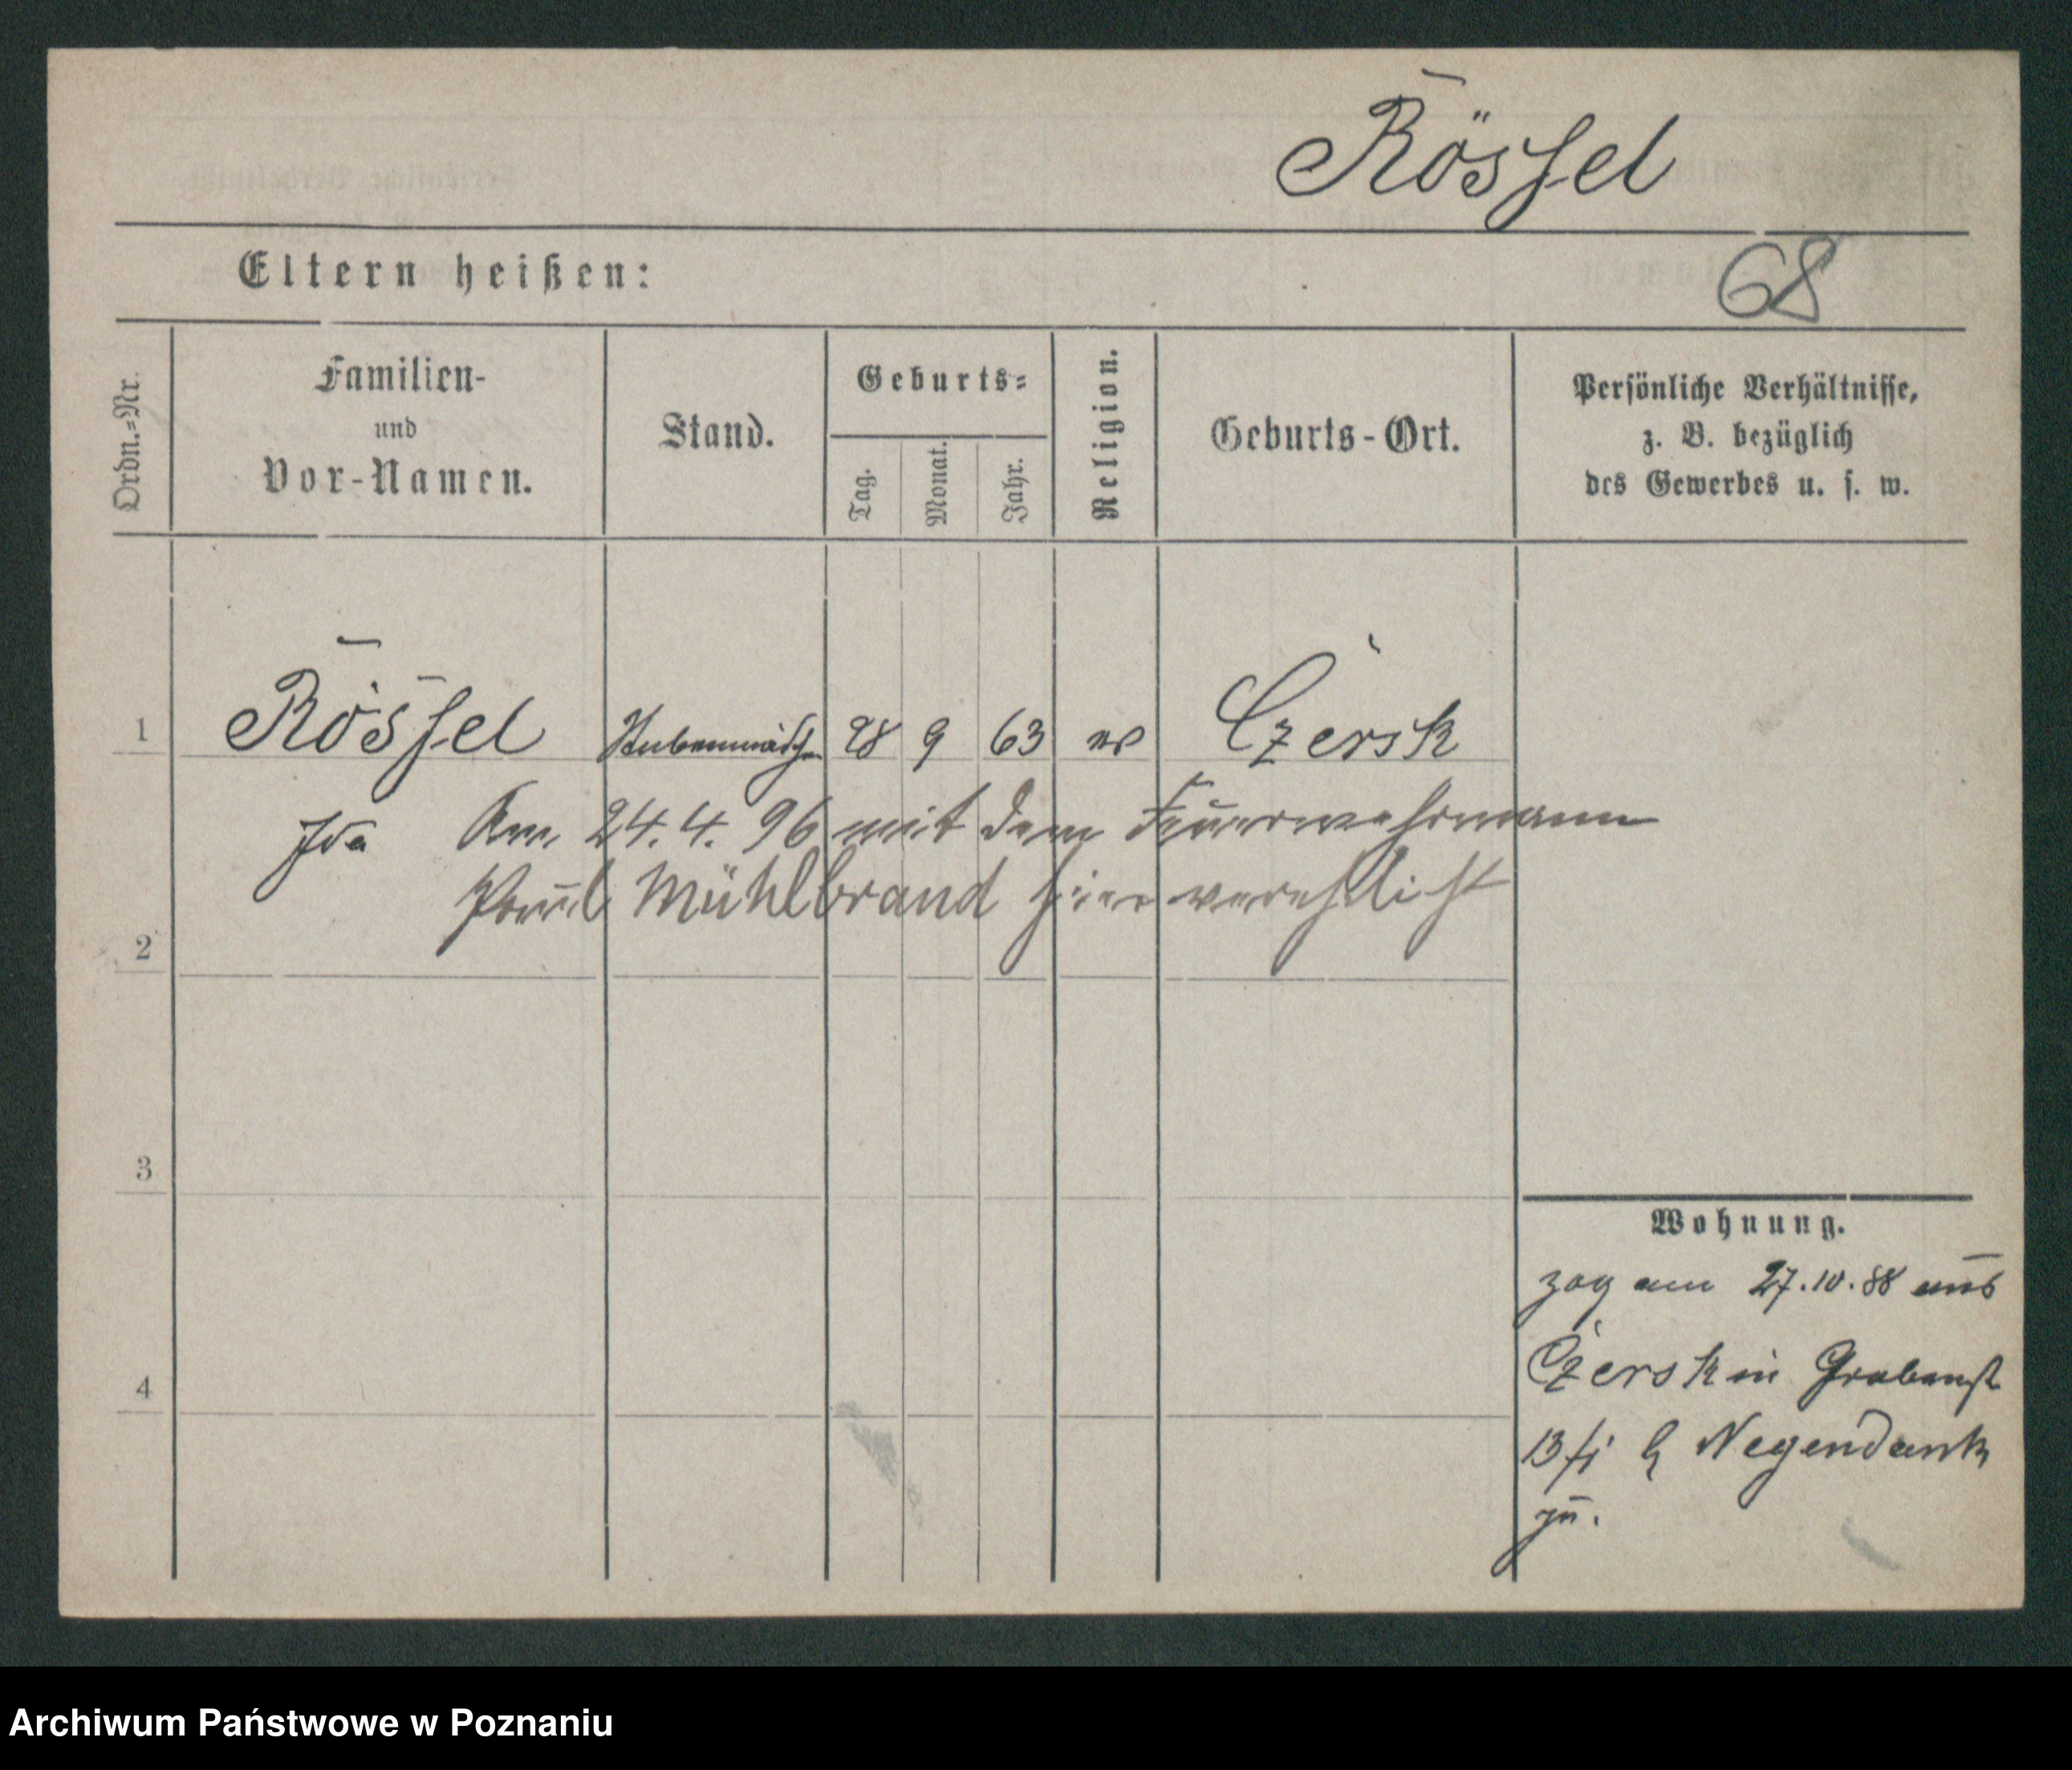 Rössel
Eltern heißen:
68
Ordn.=Nr.
Familien-
und
Vor-Namen.
Stand.
Geburts=
Tag.
Monat.
Jahr.
Religion.
Geburts-Ort.
Persönliche Verhältnisse,
z. B. bezüglich
des Gewerbes u. s. w.
1 Rössel 28 9 63 ev Czersk
Ida Am 24.4.96 mit dem Feuerwehrmann
Paul Mühlbrand hier verehelicht
2
3
Wohnung.
zog am 27.10.88 aus
Czersk in Grabenst
4
13 b Negendank
zu.
Archiwum Państwowe w Poznaniu